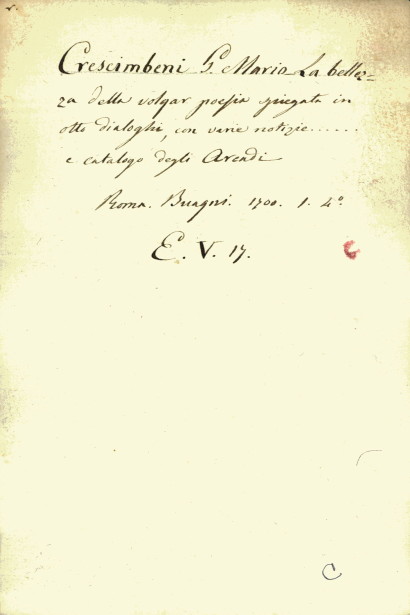 Crescimbeni G. Mario La bellez-
za della volgar poesia spiegata in
otto dialoghi, con varie notizie......
e catalogo degli Arcadi
Roma. Buagni. 1700. 1. 4º.
E. V. 17.
C